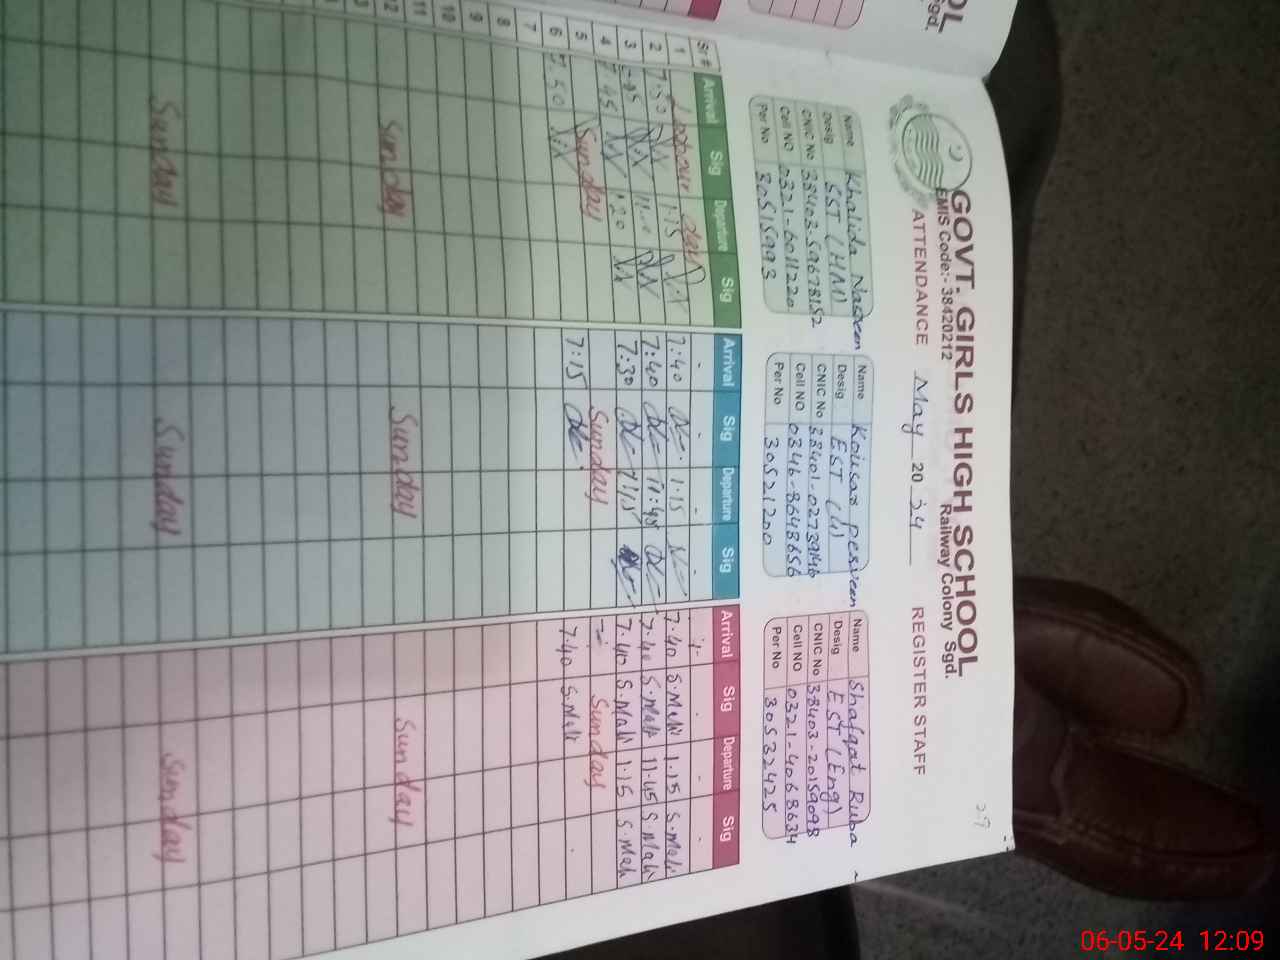 GOVT. GIRLS HIGH SCHOOL
EMIS Code:- 38420212 Railway Colony Sgd.
ATTENDANCE May 20 24 REGISTER STAFF
Name Khalida Nasreen
Desig SST (HM)
CNIC No 38403-59678152
Cell NO 0321-6011220
Per No 30515993
Name Kousar Perveen
Desig EST (A)
CNIC No 38401-02739146
Cell NO 0346-8648656
Per No 30521200
Name Shafqat Ruba
Desig EST (Eng)
CNIC No 38403-20159098
Cell NO 0321-4068634
Per No 30532425
Sr # Arrival Sig Departure Sig Arrival Sig Departure Sig Arrival Sig Departure Sig
1 Labour day
2 7:50 1:15 7:40 1:15 7.40 S.Mali 1.15 S.Mali
3 7:40 11:45 7.40 S.Mali 11.45 S.Mali
4 7:45 1:20 7:30 7.40 S.Mali 1.15 S.Mali
5 Sunday Sunday Sunday
6 7:50 7:15 7.40 S.Mali
7
8
9
10
11
12 Sunday Sunday Sunday
13
Sunday Sunday Sunday
06-05-24 12:09